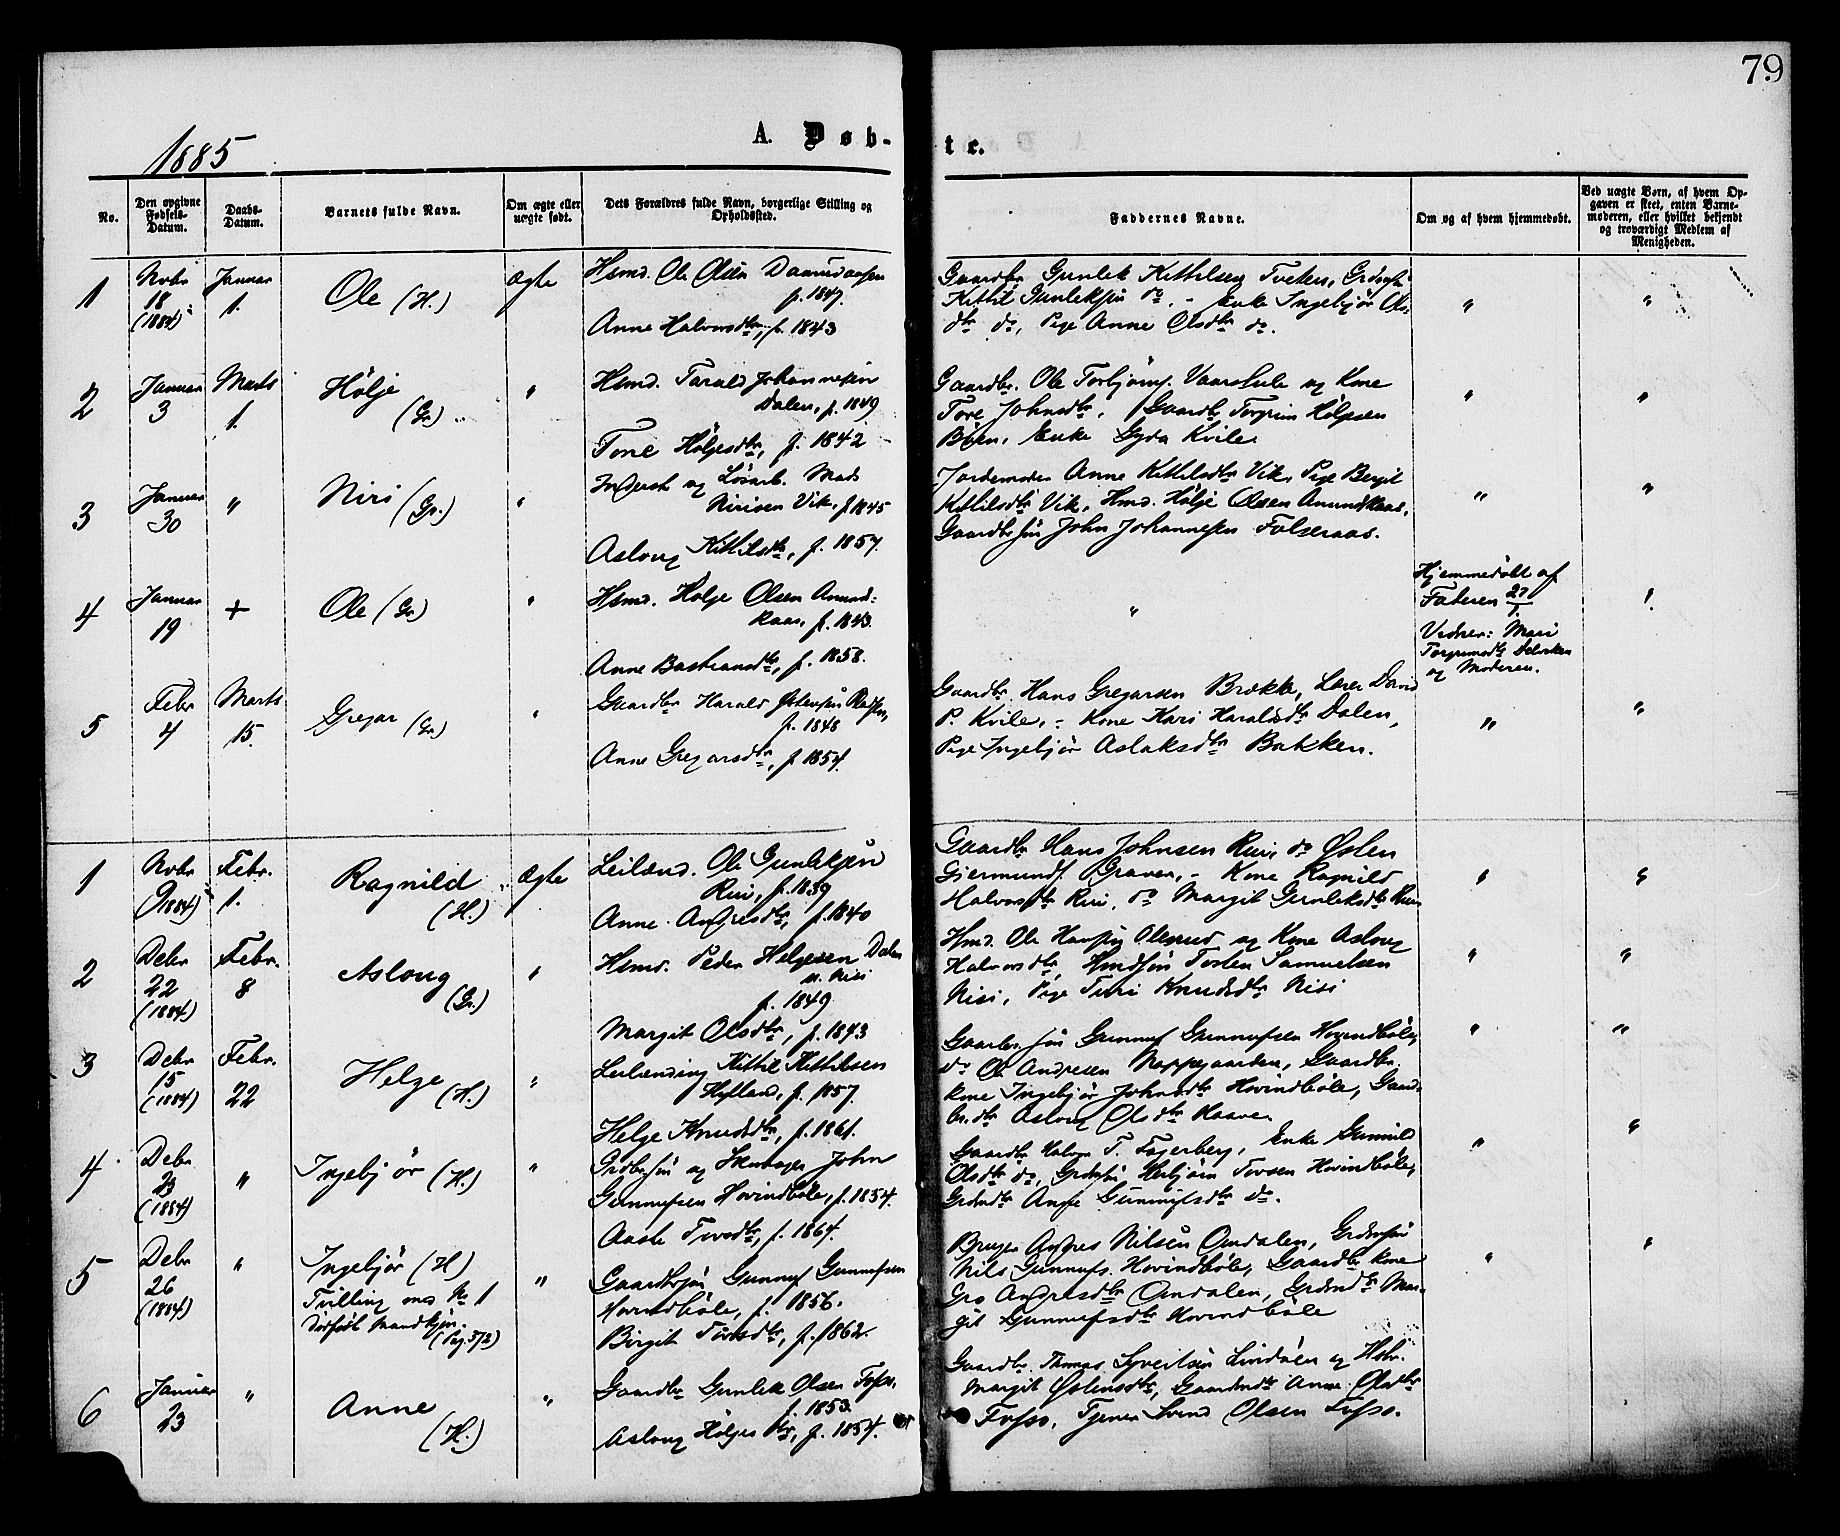 79
1885
A. Døb-
te.
No.
Den opgivne Fødsels-Datum.
Daabs-Datum.
Barnets fulde Navn.
Om ægte eller uægte født.
Dets Forældres fulde Navn, borgerlige Stilling og Opholdssted.
Faddernes Navne.
Om og af hvem hjemmedøbt.
Ved uægte Børn, af hvem Opgaven er skeet, enten Barnemoderen, eller hvilket bekjendt og troværdigt Medlem af Menigheden.
1
Novbr 18 (1884)
Januar 1.
Ole (H.)
Ægte
Hsmd. Ole Olsen
f. 1847.
Anne Halvorsdtr, f. 1843
Gaardbr. Gunlek Kittilsen Tveten, Grdms.
Kittil Gunleksøn do. - Enke Ingebjør Ols-
dtr do, Pige Anne Olsdtr do.
"
"
2
Januar 3
Marts 1.
Hølje (Gr.)
"
Hsmd. Tarald Johannesøn
Dalen, f. 1849
Tone Høljesdtr, f. 1842
Gaardbr. Ole Torbjørns. Vaarstule og Kone
Tore Johnsdtr, Gaardbr Torgrim Høljesen
Bøen, Enke Gyda Kvile.
"
"
3
Januar 30
"
Niri (Gr.)
"
Inderst og Løsarb. Mads
Nirisen Vik, f. 1845
Asloug Kittilsdtr, f. 1857.
Jordemoder Anne Kittilsdtr Vik, Pige Bergit
Kittilsdtr Vik, Hsmd. Hølje Olsen Amundkaas,
Gaardbrsøn John Johannesen Folseraas.
"
"
4
Januar 19
+
Ole (Gr.)
"
Hsmd. Hølje Olsen Amund-
kaas, f. 1843.
Anne Bastiansdtr, f. 1858.
"
Hjemmedøbt af
Faderen 27/1.
Vidner: Mari
Torgrimsdtr
og Moderen.
"
5
Febr 4
Marts 15.
Gregar (Gr.)
"
Gaardbr Harald Østensøn
f. 1848
Anne Gregarsdtr, f. 1854.
Gaardbr. Hans Gregarsen Brække, Lærer David
P. Kvile, - Kone Kari Haraldsdtr Dalen,
Pige Ingebjør Aslaksdtr Bakken.
"
"
1
Novbr 9 (1884)
Febr. 1.
Ragnild (H.)
Ægte
Leilænd. Ole Gunleksøn
Rui, f. 1839
Anne Andresdtr, f. 1840
Gaardbr Hans Johnsen Rui, do Østen
Gjermunds. Graver, - Kone Ragnild
Halvorsdtr Rui, do Margit Gunleksdtr Rui.
"
"
2
Debr 22 (1884)
Febr. 8
Asloug (Gr.)
"
Hsmd. Peder Helgesen Dalen
u. Nisi
f. 1849
Margit Olsdtr, f. 1843
Hsmd. Ole Hansøn Olesrud og Kone Asloug
Halvorsdtr, Hmdsøn Tosten Samuelsen
Nisi, Pige Turi Knudsdtr Nisi
"
"
3
Debr 15 (1884)
Febr. 22
Helge (H.)
"
Leilænding Kittil Kittilsen
Hefland, f. 1857.
Helge Knudsdtr, f. 1861.
Gaardbr. søn Gunnuf Gunnufsen Hovindbøle,
do Ole Andresen Nappegaarden, Gaardbr.
Kone Ingebjør Johnsdtr Hovindbøle, Gaard-
br.dtr Asloug Olsdtr Haave.
"
"
4
Debr 23 (1884)
"
Ingebjør (H.)
"
Grdbrsøn og John
Gunnufsen Hovindbøle, f. 1854.
Aaste Tovsdtr, f. 1864.
Gaardbr Halvor T. Fagerberg, Enke Gunnild
Olsdtr do, Grdmsøn Herbjørn Tovsen Hovindbøle,
Grdmdtr Anne Gunnufsdtr do.
"
"
5
Debr 26 (1884)
"
Ingebjør (H)
Tvilling med No 1
dødfødt Mandkjøn.
(Pag. 373)
"
Gaardbrsøn Gunnuf Gunnufsen
Hovindbøle, f. 1856.
Birgit Tovsdtr, f. 1862.
Bruger Andres Nilsøn Omdalen, Grdmsøn
Nils Gunnufs. Hovindbøle, Gaardbr Kone
Gro Andresdtr Omdalen, Grdmdtr Mar-
git Gunnufsdtr Hovindbøle
"
"
6
Januar 23
"
Anne (H.)
"
Gaardbr Gunlek Olsen Fosso,
f. 1853.
Asloug Høljesdtr, f. 1854.
Gaardbr. Thomas Syvertsøn Lindøen og Hstr.
Margit Østensdtr, Gaardmdtr Anne Olsdtr
Fosso, Tjener Svend Olsen Fosso.